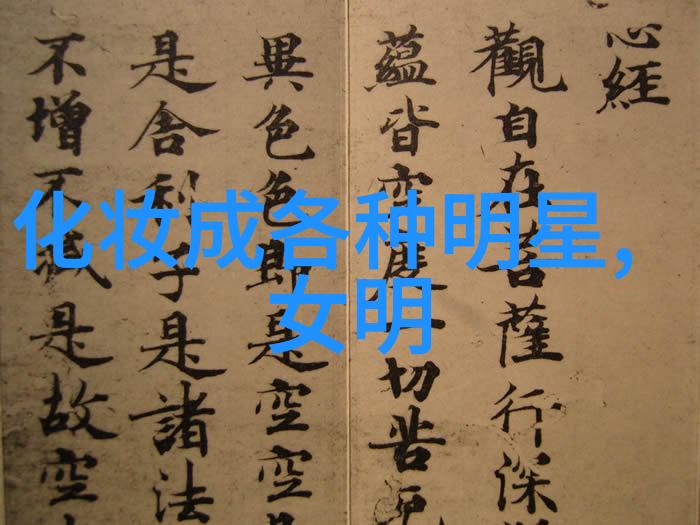 心經
觀自在菩薩行深
蘊皆空度一切苦厄
異色色即是空空
是舍利子是諸法
不增不減是故空
化妆成各种明星,
女明